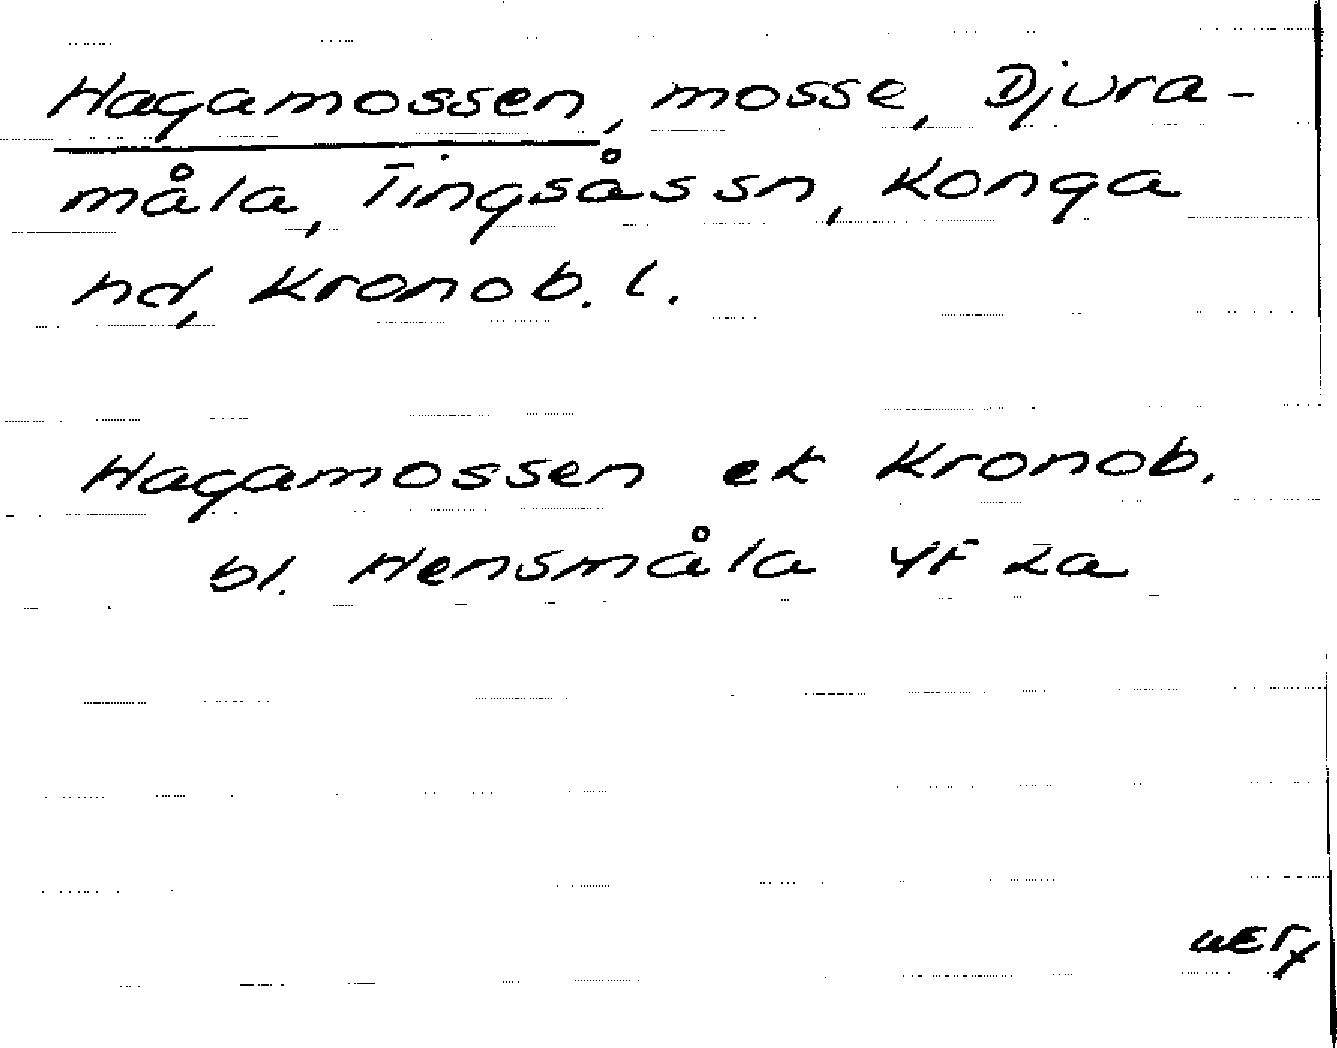 Hagamossen, mosse, Djura-
måla, Tingsås sn, Konga
hd, Kronob. l.
Hagamossen ek Kronob.
bl. Hensmåla 4F 2a